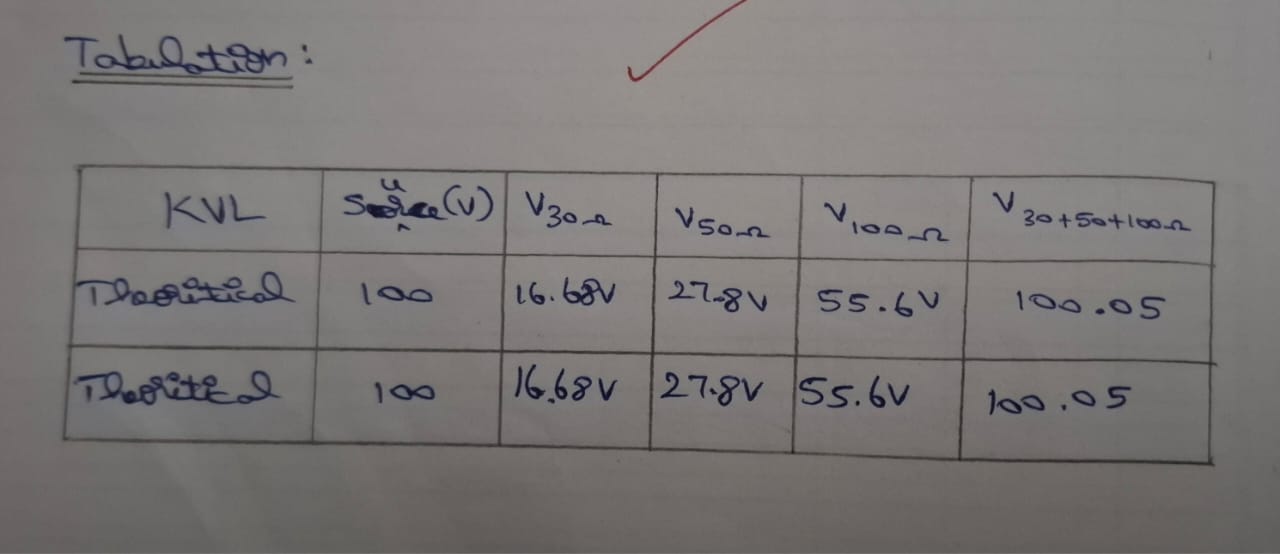 Tabulation:
KVL Source(V) V30Ω V50Ω V100Ω V30+50+100Ω
Theoritical 100 16.68V 27.8V 55.6V 100.05
Theoritical 100 16.68V 27.8V 55.6V 100.05